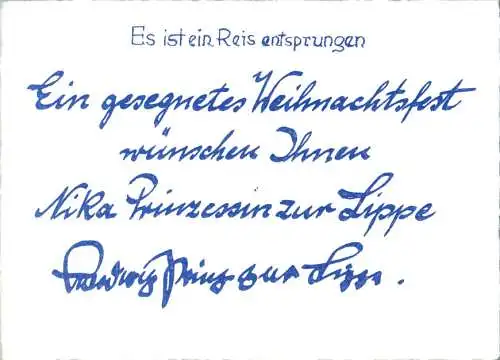 Es ist ein Reis entsprungen
Ein gesegnetes Weihnachtsfest
wünschen Ihnen
Nika Prinzessin zur Lippe
Ludwig Prinz zur Lippe.